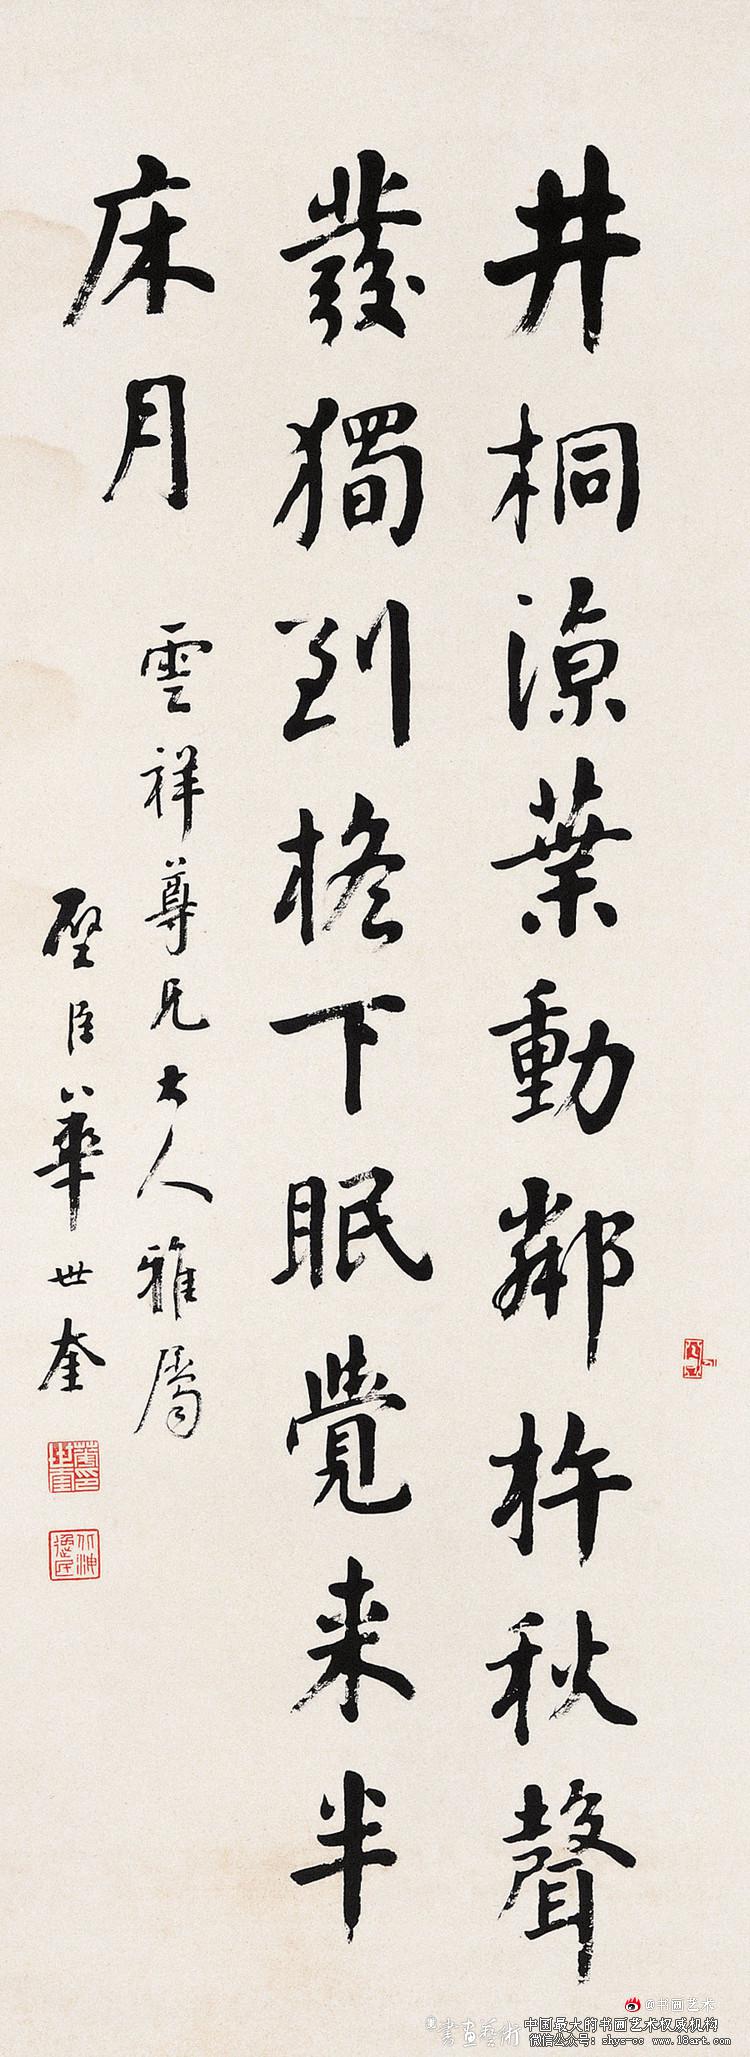 井桐涼葉動鄰杵秋聲
發獨到檐下眠覺来半
床月
雲祥尊兄大人雅屬
璧臣華世奎
華世奎印
@书画艺术
書畫藝術
中国最大的书画艺术权威机构
微信公众号：shys-cc www.18art.com